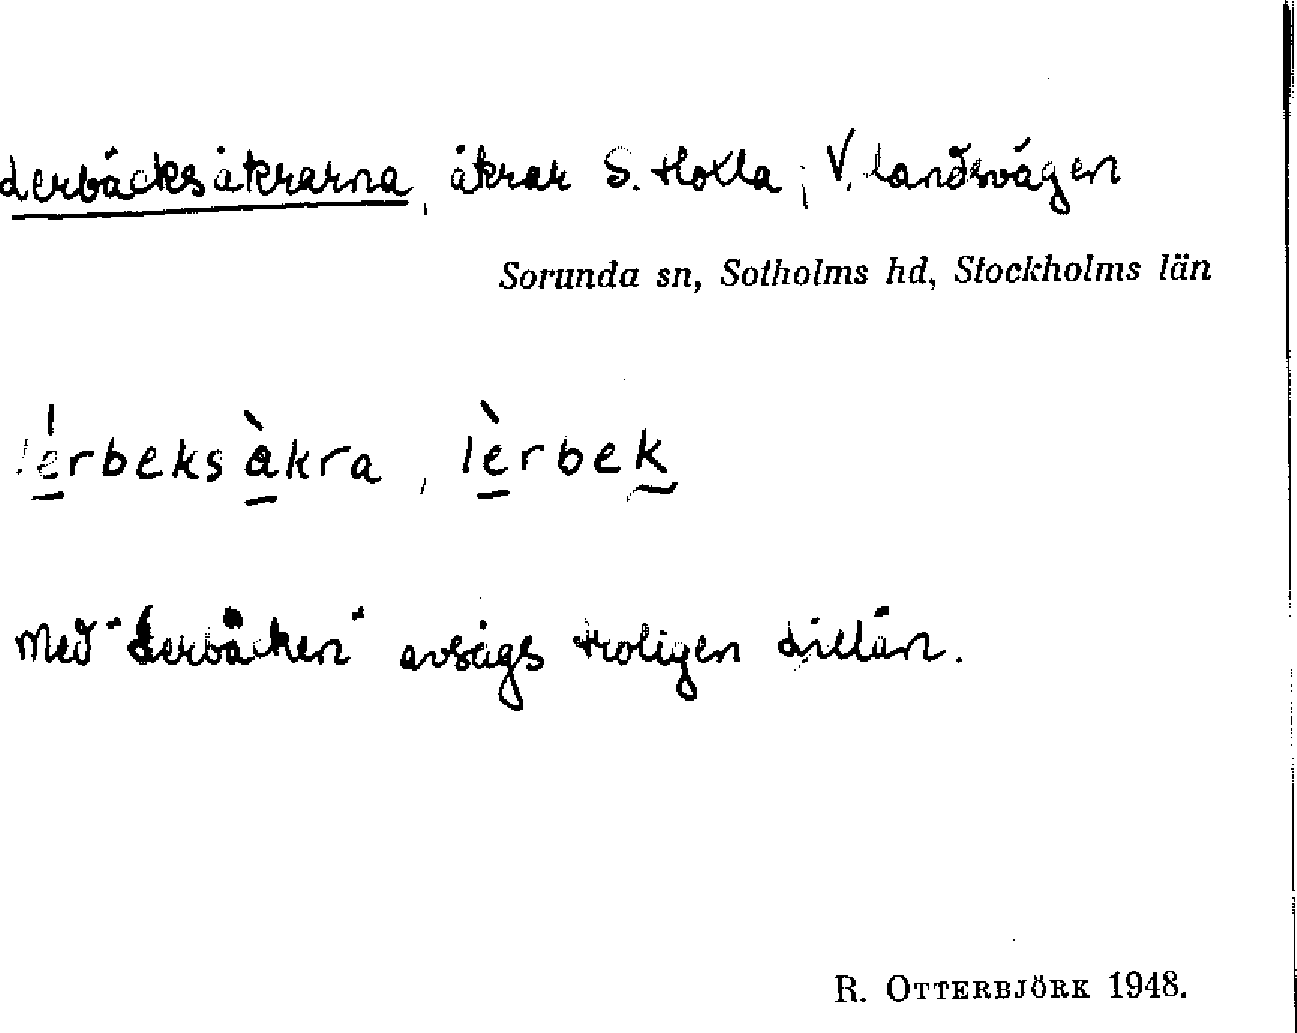 Lerbäcksåkrarna, åkrar S. Holla, V. landsvägen
Sorunda sn, Sotholms hd, Stockholms län
lérbeksàkra, lèrbek
Med "Lerbäcken" avságs troligen Lillån.
R. OTTERBJÖRK 1948.